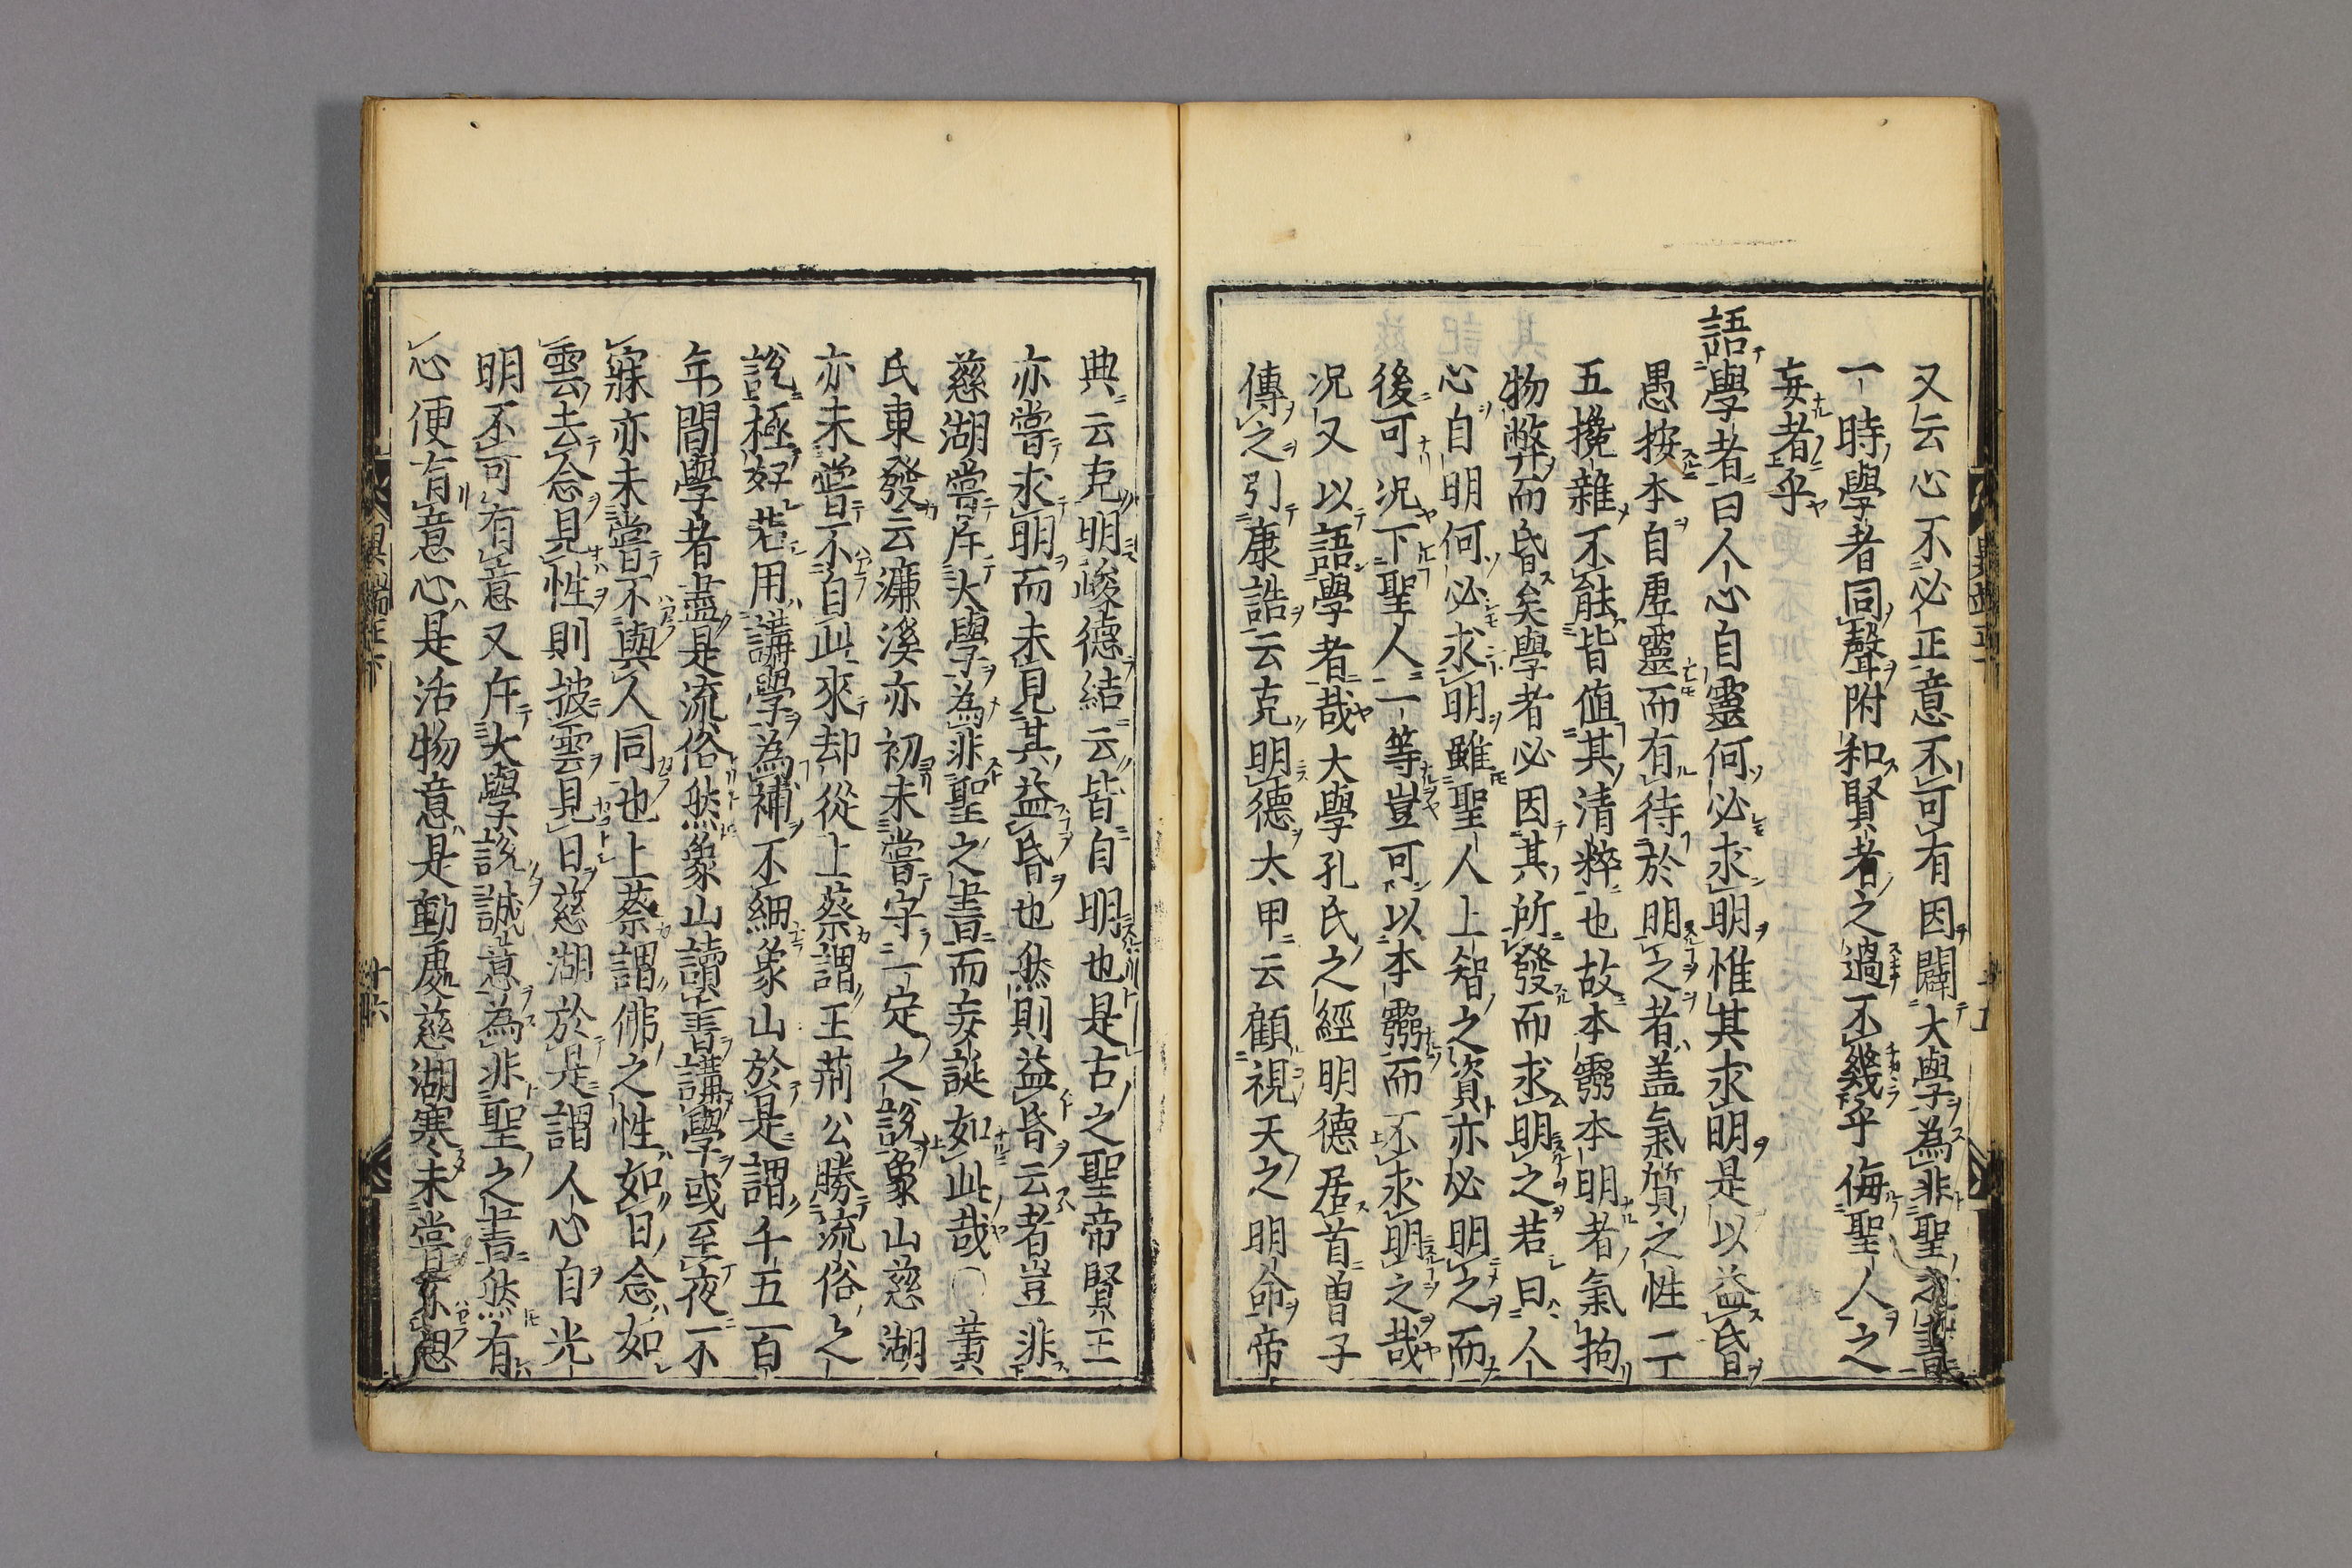 又云心不必正意不可有因闢大學為非聖之書
一時學者同聲附和賢者之過不幾乎侮聖人之
妄者乎
語學者曰人心自靈何必求明惟其求明是以益昏
愚按本自虛靈而有待於明之者盖氣質之性二
五攙雜不能皆值其清粹也故本靈本明者氣拘
物弊而昏矣學者必因其所發而求明之若曰人
心自明何必求明雖聖人上智之資亦必明之而
後可況下聖人一等豈可以本靈而不求明之哉
況又以語學者哉大學孔氏之經明德居首曽子
傳之引康誥云克明德大甲云顧視天之明命帝
典云克明峻德結云皆自明也是古之聖帝賢王
亦嘗求明而未見其益昏也然則益昏云者豈非
慈湖嘗斥大學為非聖之書而妄誕如此哉○黄
氏東發云濂溪亦初未嘗守一定之說象山慈湖
亦未嘗不自此來却從上蔡謂王荊公勝流俗之
說極好若用講學為補不細象山於是謂千五百
年間學者盡是流俗然象山讀書講學或至夜不
寐亦未嘗不與人同也上蔡謂佛之性如日念如
雲去念見性則披雲見日慈湖於是謂人心自光
明不可有意又斥大學說誠意為非聖之書然有
心便有意心是活物意是動處慈湖寒未嘗不思
異端正下
十六